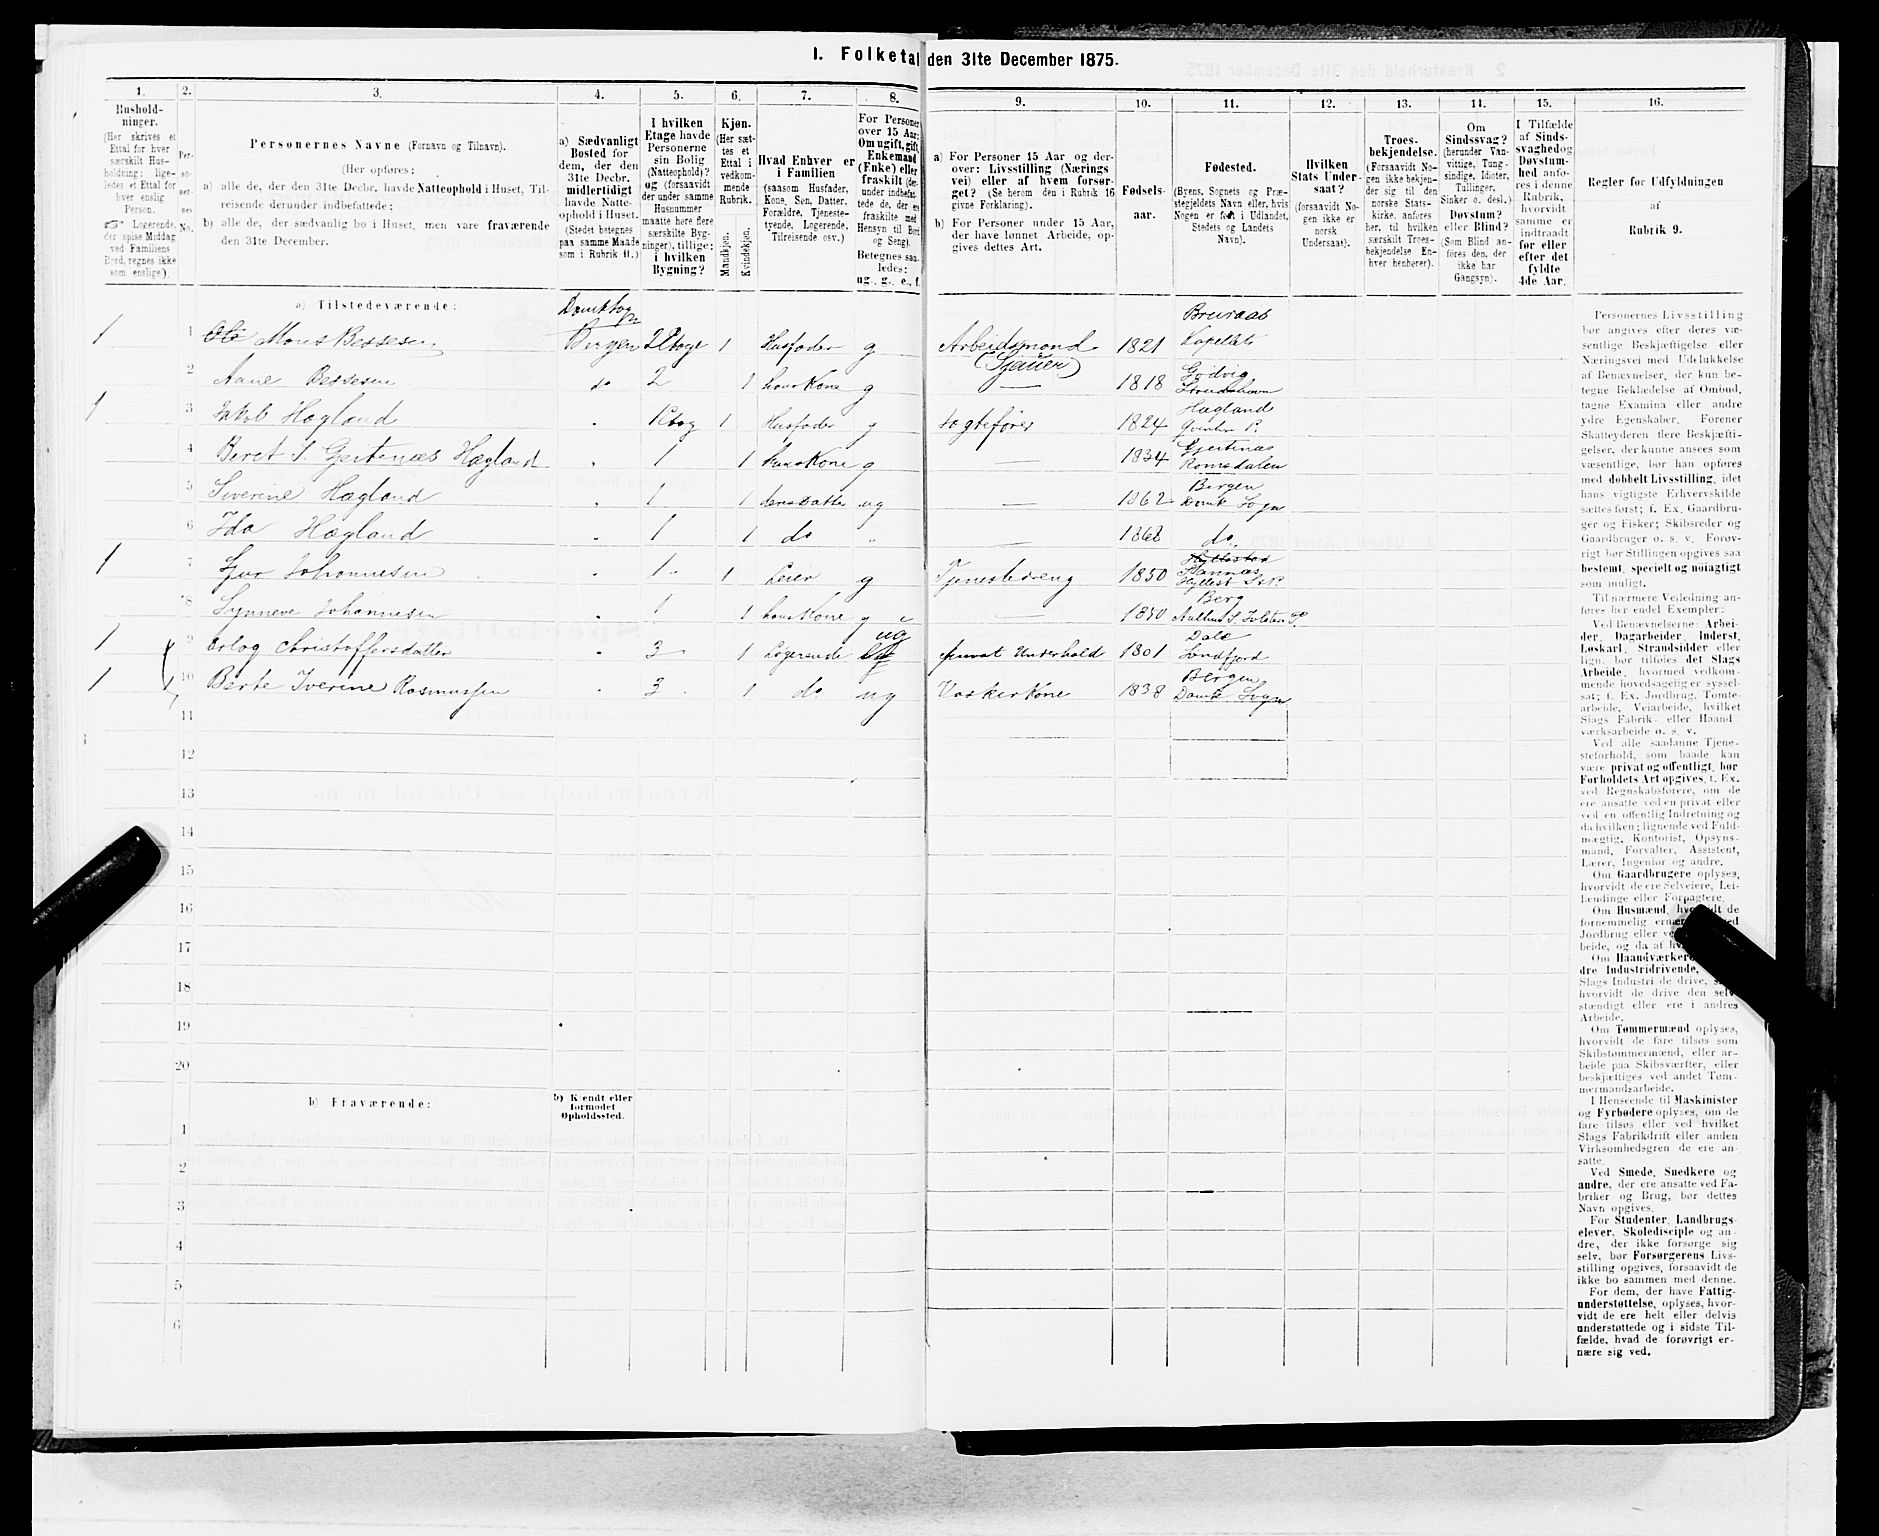 1. Folketal den 31te December 1875.
1. Husholdninger. (Her skrives et Ettal for hver særskilt Husholdning; ligeledes et Ettal for hver enslig Person. Logerende, der spise Middag ved Familiens Bord, regnes ikke som enslige).
2. Personernes No.
3. Personernes Navne (Fornavn og Tilnavn).
(Her opføres:
a) alle de, der den 31te Decbr. havde Natteophold i Huset, Tilreisende derunder indbefattede;
b) alle de, der sædvanlig bo i Huset, men vare fraværende den 31te December.
4. a) Sædvanligt Bosted for dem, der den 31te Decbr. midlertidigt havde Natteophold i Huset. (Stedet betegnes paa samme Maade som i Rubrik 11.)
5. I hvilken Etage havde Personerne sin Bolig (Natteophold)? og (forsaavidt der under samme Husnummer maatte høre flere særskilte Bygninger), tillige: i hvilken Bygning?
6. Kjøn. (Her sættes et Ettal i vedkommende Rubrik. Mandkjøn. Kvindekjøn.
7. Hvad Enhver er i Familien (saasom Husfader, Kone, Søn, Datter, Forældre, Tjenestetyende, Logerende, Tilreisende osv.)
8. For Personer over 15 Aar: Om ugift, gift, Enkemand (Enke) eller fraskilt
Betegnes saaledes: ug., g., e., f.
9. a) For Personer 15 Aar og derover: Livsstilling (Næringsvei) eller af hvem forsørget? (Se herom den i Rubrik 16 givne Forklaring).
b) For Personer under 15 Aar, der have lønnet Arbeide, opgives dettes Art.
10. Fødselsaar.
11. Fødested. (Byens, Sognets og Præstegjeldets Navn eller, hvis Nogen er født i Udlandet, Stedets og Landets Navn).
12. Hvilken Stats Undersaat? (forsaavidt Nogen ikke er norsk Undersaat).
13. Troesbekjendelse. (Forsaavidt Nogen ikke bekjender sig til den norske Statskirke, anføres her, til hvilken særskilt Troesbekjendelse Enhver henhører).
14. Om Sindssvag? (herunder Vanvittige, Tungsindige, Idioter, Tullinger, Sinker o. desl.) Døvstum? eller Blind? (Som Blind anføres den, der ikke har Gangsyn).
15. I Tilfælde af Sindssvaghed og Døvstumhed anføres i denne Rubrik, hvorvidt samme er indtraadt før eller efter det fyldte 4de Aar.
16. Regler for Udfyldningen af Rubrik 9.
a) Tilstedeværende:
1 1 Mons Bessesen Bergen 2 Etage 1 Husfader g Arbeidsmand (Sjauer) 1821 Kapellet
2 Aane Bessesen do 2 1 hans Kone g — 1818
1 3 Jakob Hægland 1 Etag 1 Husfader g Jagtefører 1824 Hægland
4 Beret S. Gjertenæs Hægland 1 1 hans Kone g — 1834 Gjertenæs Romsdalen
5 Severine Hægland 1 1 deres Datter ug — 1862 Bergen Domk Sogn
6 Ida Hægland 1 1 do „ — 1868 do
1 7 Johannesen 1 1 Leier g Tjenestedreng 1850
8 Synneve Johannesen 1 1 hans Kone g — 1850 Berg
1 9 Christoffersdatter 3 1 Logerende ug privat Underhold 1801 Dale Søndfjord
1 10 Berte Iverine Rasmussen 3 1 do ug Vaskerkone 1838 Bergen Domk Sogn
11
12
13
14
15
16
17
18
19
20
b) Fraværende:
b) Kjendt eller formodet Opholdssted.
1
2
3
4
5
6
Personernes Livsstilling
bør angives efter deres væ-
sentlige Beskjæftigelse eller
Næringsvei med Udelukkelse
af Benævnelser, der kun be-
tegne Beklædelse af Ombud,
tagne Examina eller andre
ydre Egenskaber. Forener
Skatteyderen flere Beskjæfti-
gelser, der kunne ansees som
væsentlige, bør han opføres
med dobbelt Livsstilling, idet
hans vigtigste Erhvervskilde
sættes først; f. Ex. Gaardbru-
ger og Fisker; Skibsreder og
Gaardbruger o. s. v. Forøv-
rigt bør Stillingen opgives saa
bestemt, specielt og nøiagtigt
som muligt.
Til nærmere Veiledning an-
føres her endel Exempler:
Ved Benævnelserne: Arbei-
der, Dagarbeider, Inderst,
Løskarl, Strandsidder eller
lign. bør tilføies det Slags
Arbeide, hvormed vedkom-
mende hovedsagelig er syssel-
sat; f. Ex. Jordbrug, Tomte-
arbeide, Veiarbeide, hvilket
Slags Fabrik- eller Haand-
værksarbeide o. s. v.
Ved alle saadanne Tjene-
steforhold, som baade kan
være privat og offentligt, bør
Forholdets Art opgives, f. Ex.
ved Regnskabsførere, om de
ere ansatte ved en privat eller
ved en offentlig Indretning og
da hvilken; lignende ved Fuld-
mægtig, Kontorist, Opsyns-
mand, Forvalter, Assistent,
Lærer, Ingeniør og andre.
Om Gaardbrugere oplyses,
hvorvidt de ere Selveiere, Lei-
lændinge eller Forpagtere.
Om Husmænd, hvorvidt de
fornemmelig
Jordbrug eller
beide, og da af
Om Haandværkere
dre Industridrivende,
Slags Industri de drive,
hvorvidt de drive den selv-
stændigt eller ere i andres
Arbeide.
Om Tømmermænd oplyses,
hvorvidt de fare tilsøs som
Skibstømmermænd, eller ar-
beide paa Skibsværfter, eller
beskjæftiges ved andet Tøm-
mermandsarbeide.
I Henseende til Maskinister
og Fyrbødere oplyses, om de
fare tilsøs eller ved hvilket
Slags Fabrikdrift eller anden
Virksomhedsgren de ere an-
satte.
Ved Smede, Snedkere og
andre, der ere ansatte ved Fa-
briker og Brug, bør dettes
Navn opgives.
For Studenter, Landbrugs-
elever, Skoledisciple og an-
dre, der ikke forsørge sig
selv, bør Forsørgerens Livs-
stilling opgives, forsaavidt de
ikke bo sammen med denne.
For dem, der have Fattig-
understøttelse, oplyses, hvor-
vidt de ere helt eller delvis
understøttede og i sidste Til-
fælde, hvad de forøvrigt er-
nære sig ved.